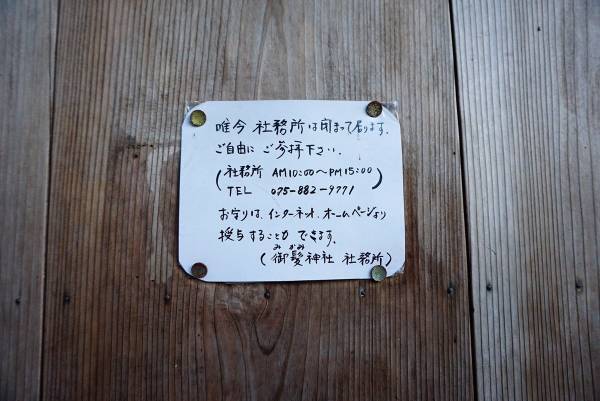 唯今 社務所は閉まって居ります.
ご自由に ご参拝下さい.
(社務所 AM10:00〜PM15:00
TEL 075-882-9771)
お守りは、インターネット、ホームページより
授与することが できます.
みかみ
(御髪神社 社務所)